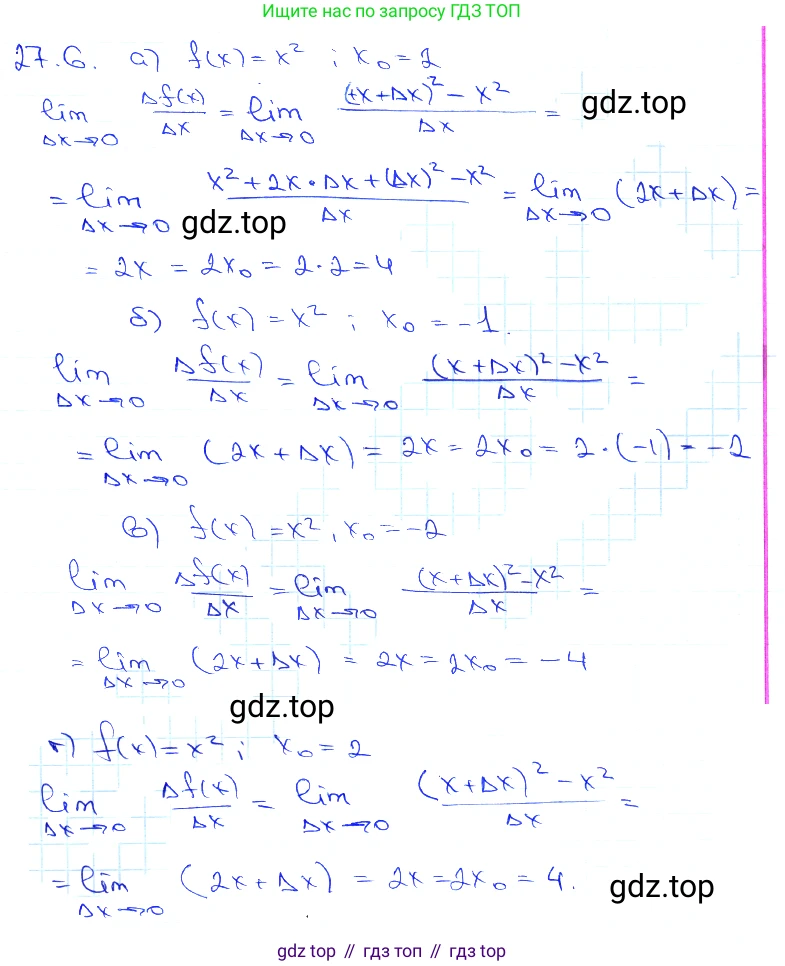 Ищите нас по запросу ГДЗ ТОП
27.6. а) f(x) = x² ; x₀ = 2
lim Δx→0 Δf(x)/Δx = lim Δx→0 ((x+Δx)² − x²)/Δx =
gdz.top
= lim Δx→0 (x² + 2x·Δx + (Δx)² − x²)/Δx = lim Δx→0 (2x + Δx) =
gdz.top
= 2x = 2x₀ = 2·2 = 4
б) f(x) = x² ; x₀ = −1.
lim Δx→0 Δf(x)/Δx = lim Δx→0 ((x+Δx)² − x²)/Δx =
= lim Δx→0 (2x + Δx) = 2x = 2x₀ = 2·(−1) = −2
в) f(x) = x², x₀ = −2
lim Δx→0 Δf(x)/Δx = lim Δx→0 ((x+Δx)² − x²)/Δx =
= lim Δx→0 (2x + Δx) = 2x = 2x₀ = −4
gdz.top
г) f(x) = x² ; x₀ = 2
lim Δx→0 Δf(x)/Δx = lim Δx→0 ((x+Δx)² − x²)/Δx =
= lim Δx→0 (2x + Δx) = 2x = 2x₀ = 4.
gdz.top
gdz top // гдз топ // gdz top